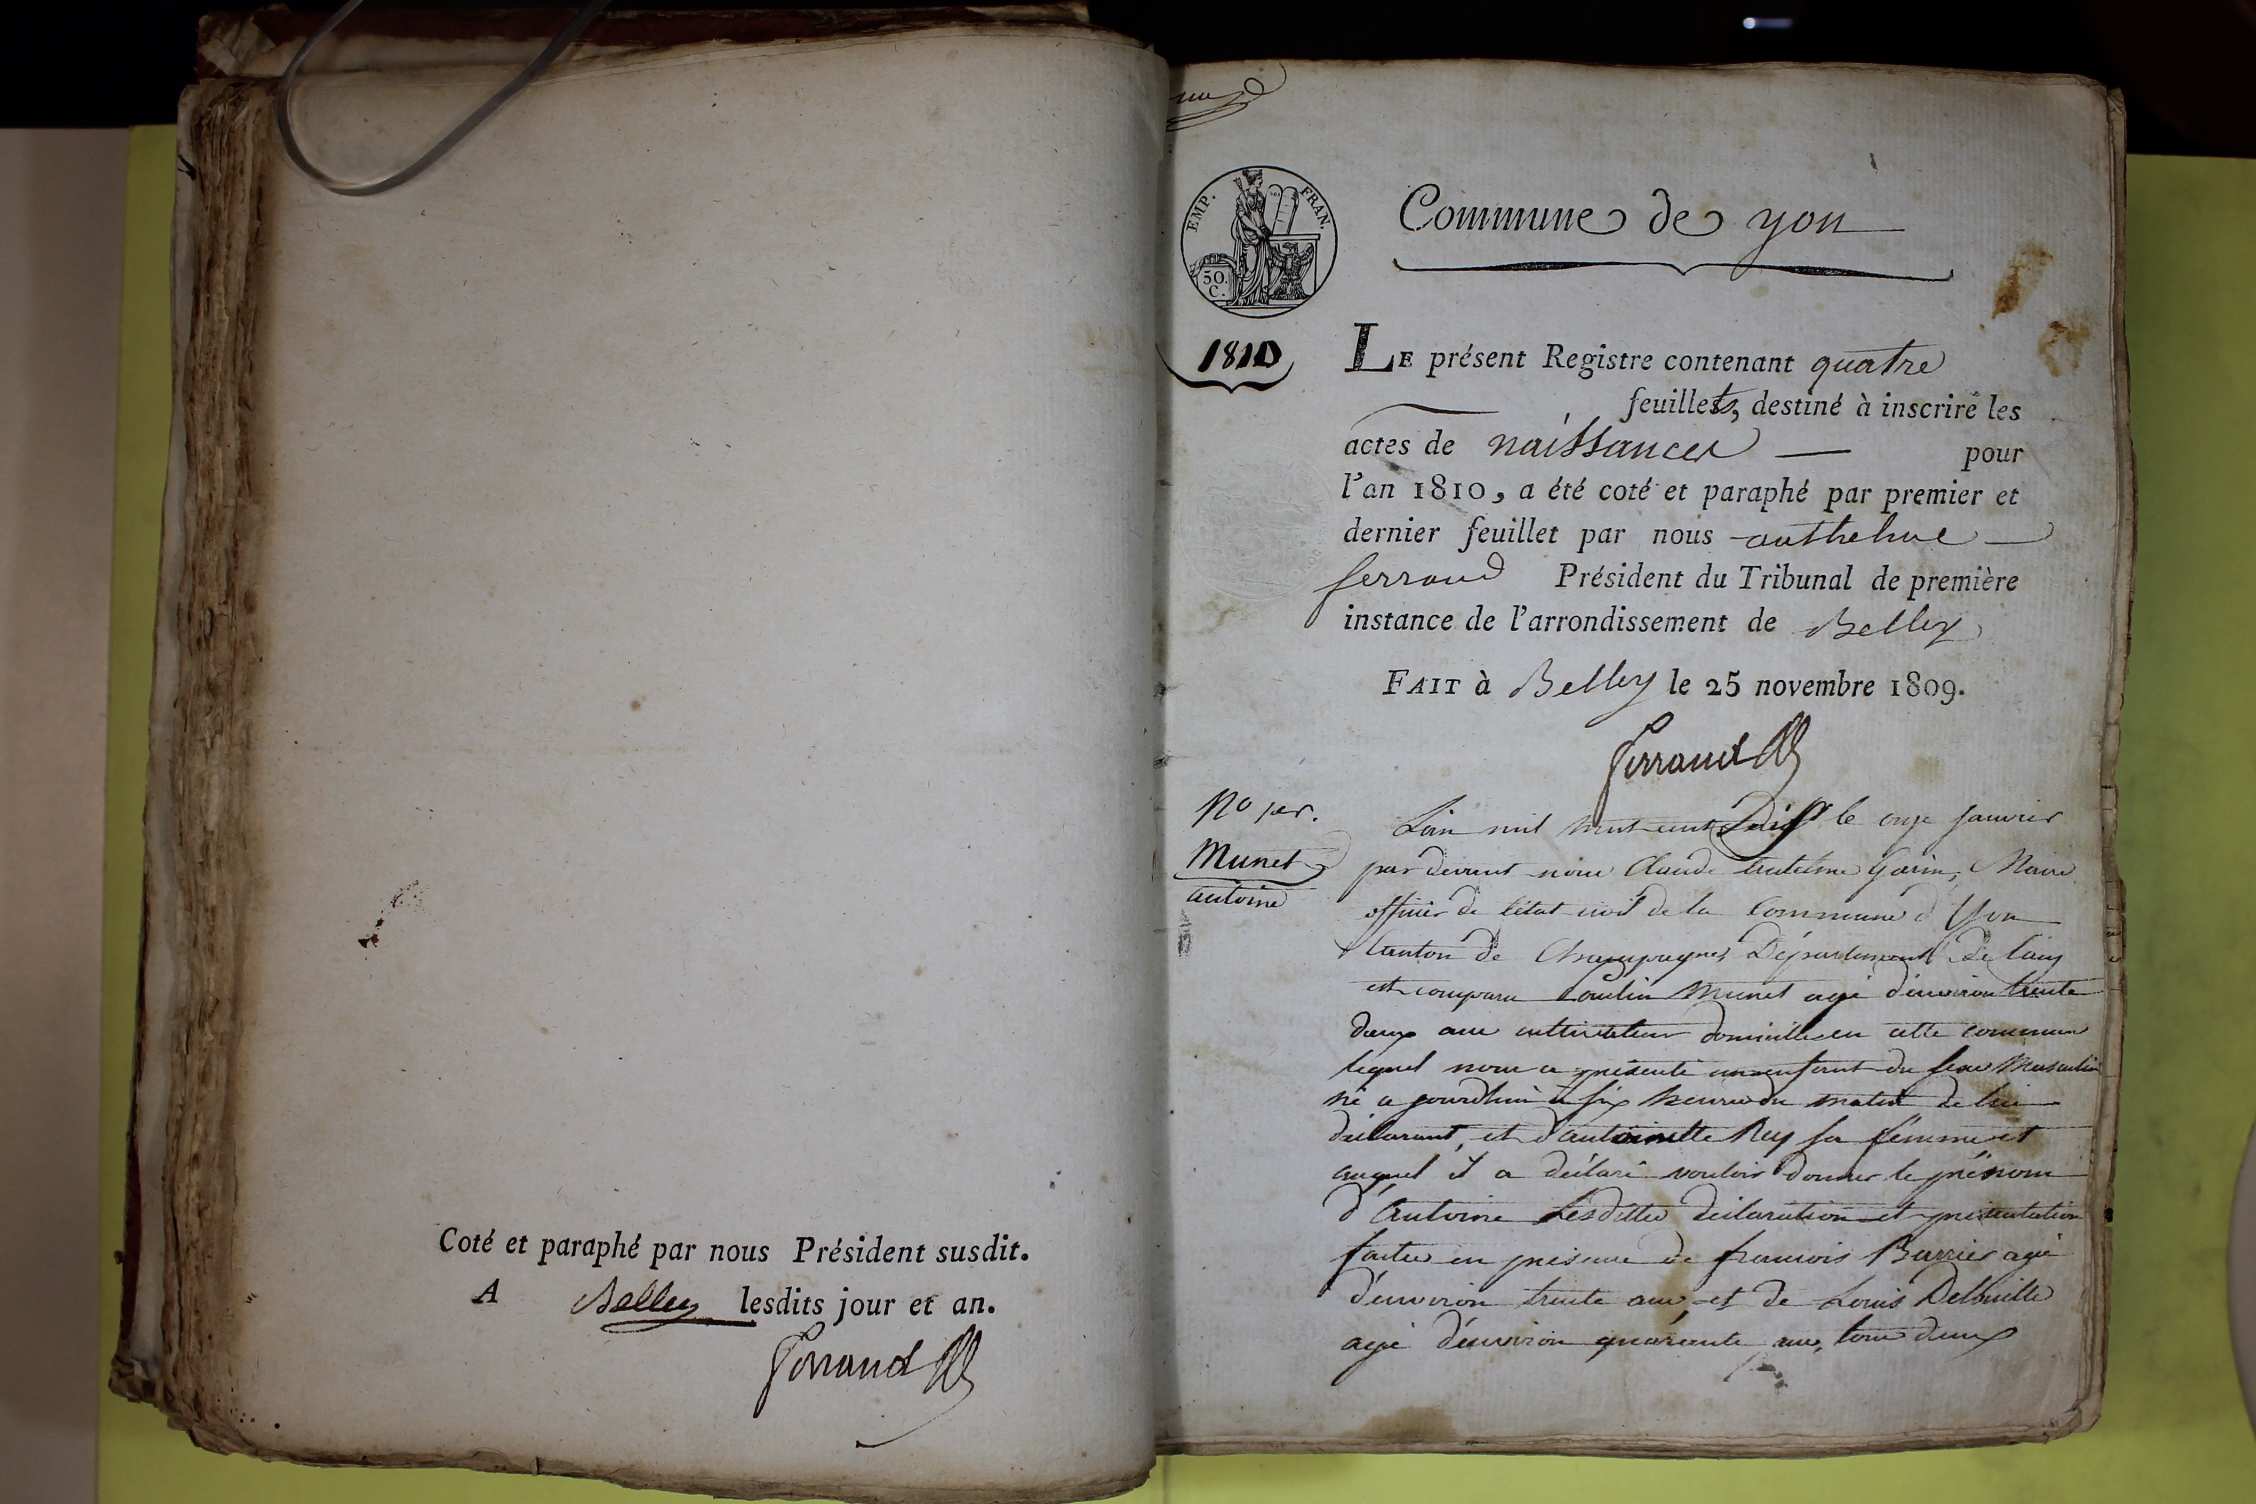 Coté et paraphé par nous Président susdit.
A Belley lesdits jour et an.
Ferraud
Commune de yon
EMP. FRAN.
50.
C.
1810
LE présent Registre contenant quatre
feuillets, destiné à inscrire les
actes de naissances — pour
l'an 1810, a été coté et paraphé par premier et
dernier feuillet par nous anthelme
ferraud Président du Tribunal de première
instance de l'arrondissement de Belley
FAIT à Belley le 25 novembre 1809.
Ferraud
No 1er.
Munet
antoine
L'an mil huit cent Dix le onze janvier
par devant nous Claude Antelme Garin, Maire
officier de l'état civil de la Commune d'Yon
Canton de Champagne, Département de l'ain
est comparu Munet agé d'environ trente
deux ans cultivateur domicilié en cette commune
lequel nous a présenté un enfant du sexe Masculin
né a jourdhui à six heures du matin de lui
déclarant, et d'antoinette Rey sa femme et
auquel il a déclaré vouloir donner le prénom
d'Antoine Lesdittes déclaration et présentation
faites en présence de francois Barrier agé
d'environ trente ans et de Louis
agé d'environ quarante ans, tous deux